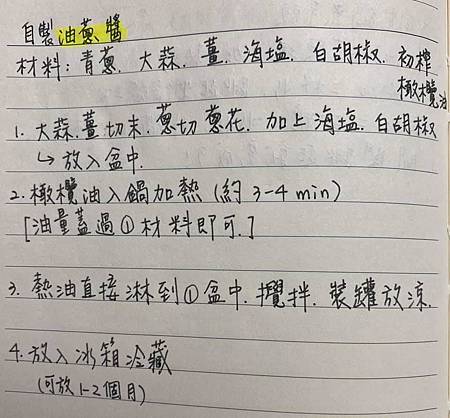 自製油蔥醬
材料: 青蔥. 大蒜. 薑. 海塩. 白胡椒. 初榨
橄欖油
1. 大蒜.薑切末. 蔥切蔥花. 加上海塩. 白胡椒
↳ 放入盆中.
2. 橄欖油入鍋加熱 (約 3-4 min)
[油量蓋過①材料即可.]
3. 熱油直接淋到①盆中. 攪拌. 裝罐放涼.
4. 放入冰箱冷藏
(可放 1-2 個月)